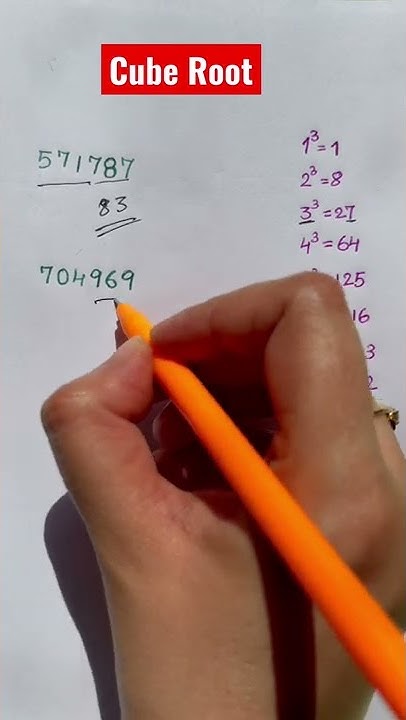 Cube Root
571787
83
704969
1³=1
2³=8
3³=27
4³=64
125
16
3
2